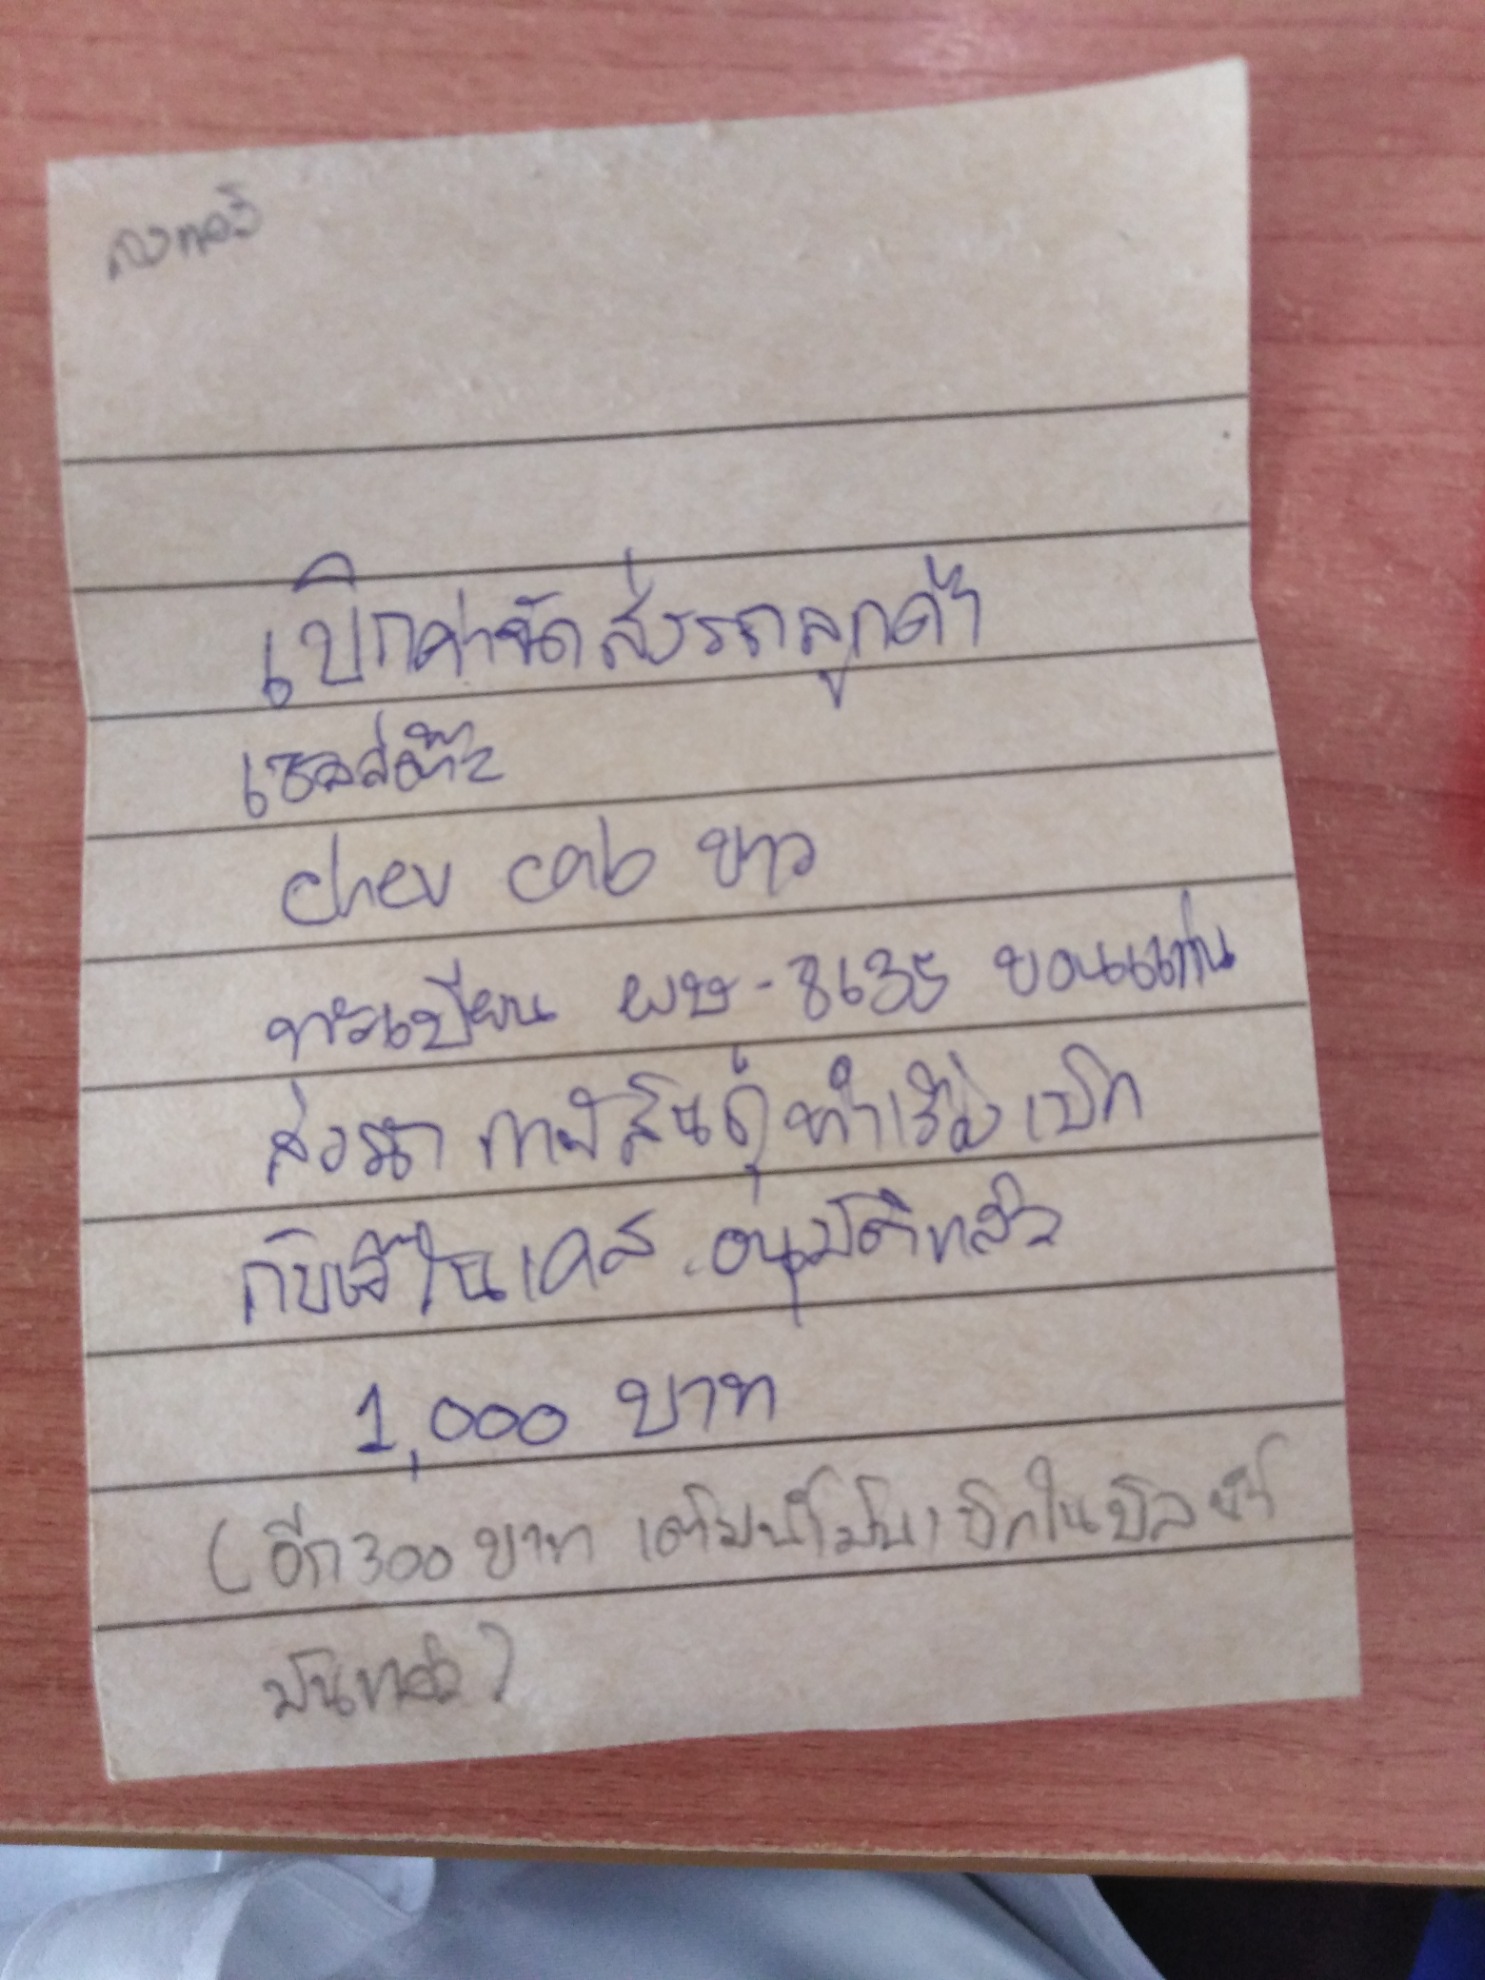 ลงแล้ว
เบิกค่าจัดส่งรถลูกค้า
เซลล์ต๊ะ
chev cab ขาว
ทะเบียน ผษ-8635 ขอนแก่น
ส่งรถ กาฬสินธุ์ ทำเรื่องเบิก
กับเจ๊ในเคส อนุมัติแล้ว
1,000 บาท
(อีก 300 บาท เติมน้ำมันเบิกในบิลน้ำ
มันแล้ว)